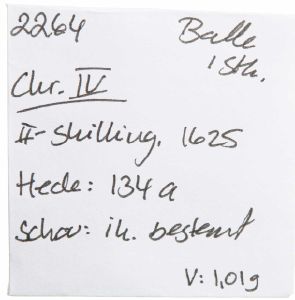 2264 Balle
1 Stk.
Chr. IV
II-skilling. 1625
Hede: 134a
Schou: ik. bestemt
V: 1,01g